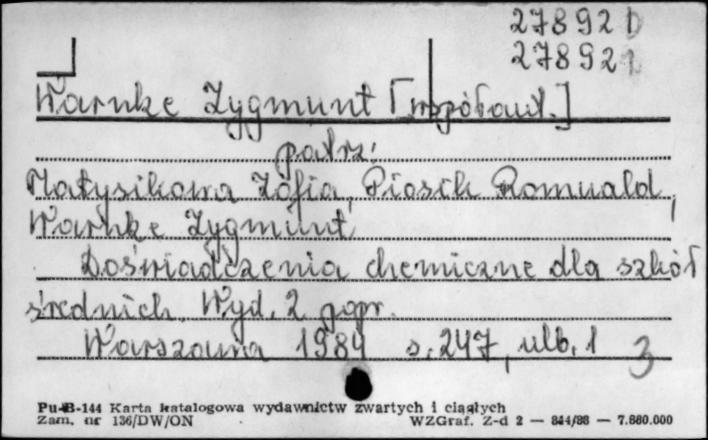 278921
278921
Warnke Zygmunt [współaut.]
patrz:
Matysikowa Zofia, Piosik Romuald,
Warnke Zygmunt
Doświadczenia chemiczne dla szkół
średnich. Wyd. 2 popr.
Warszawa 1984 s. 247, ulb. 1 3
Pu-B-144 Karta katalogowa wydawnictw zwartych i ciągłych
Zam. nr 136/DW/ON WZGraf. Z-d 2 — 844/88 — 7.680.000